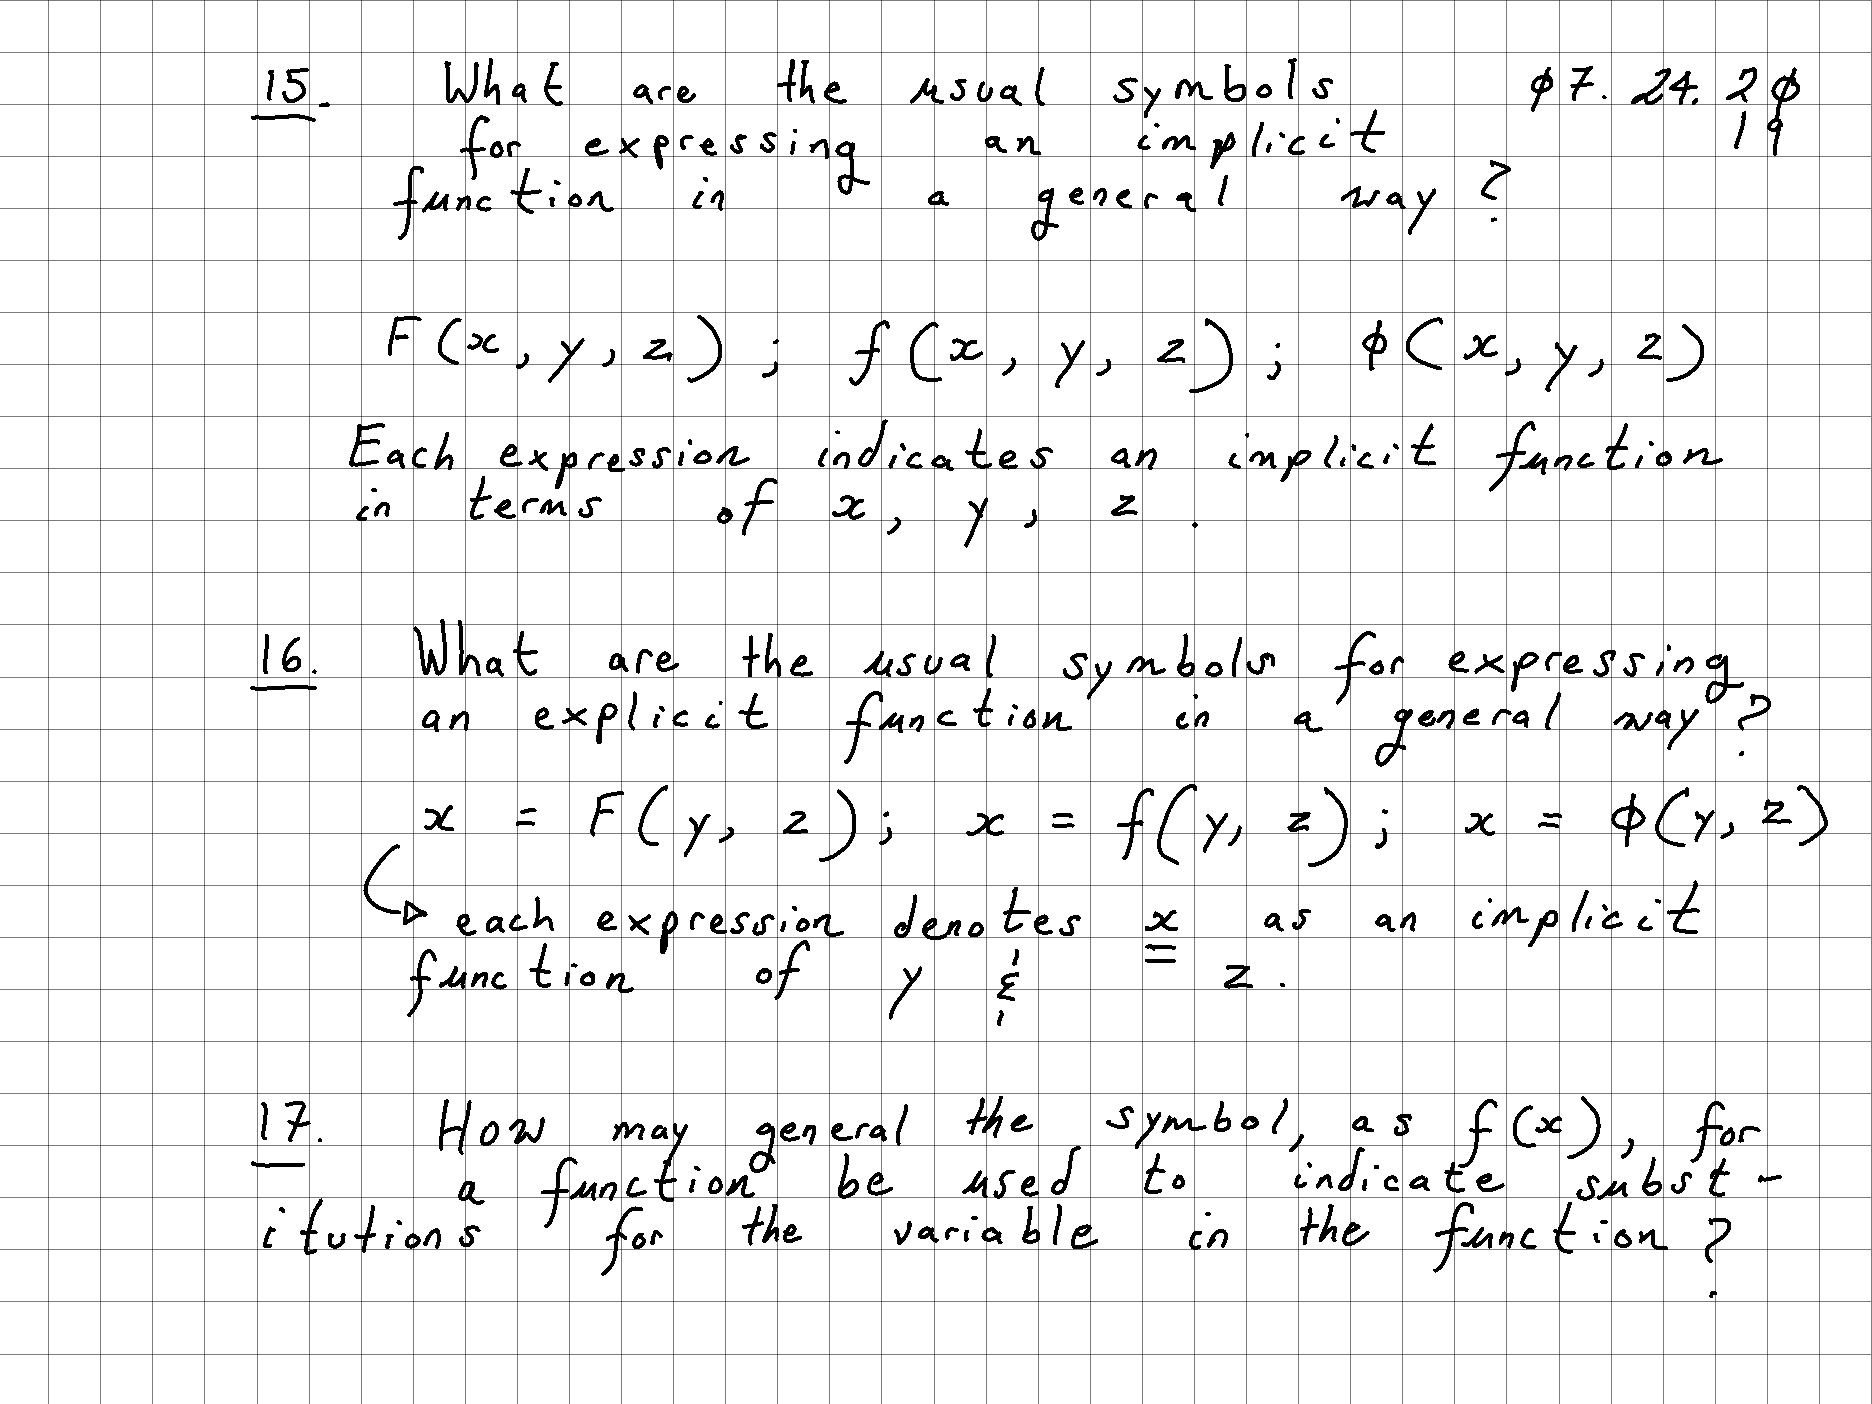 15. What are the usual symbols ø7. 24. 2ø
for expressing an implicit 19
function in a general way?
F(x, y, z); f(x, y, z); ϕ(x, y, z)
Each expression indicates an implicit function
in terms of x, y, z.
16. What are the usual symbols for expressing
an explicit function in a general way?
x = F(y, z); x = f(y, z); x = ϕ(y, z)
each expression denotes x as an implicit
function of y & z.
17. How may general the symbol, as f(x), for
a function be used to indicate subst-
itutions for the variable in the function?